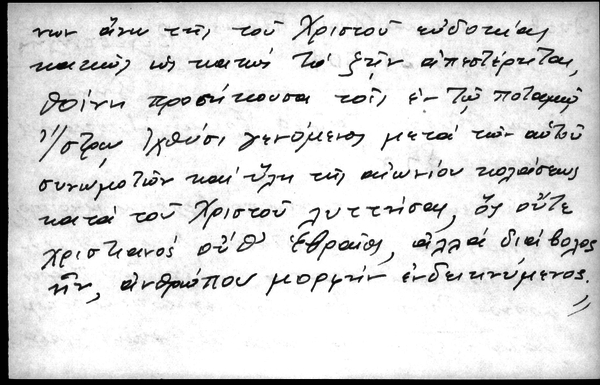 νων ἄνω τῆς τοῦ Χριστοῦ εὐδοκίας
κακῶς ὡς κακὸς τὸ ζῆν ἀπεστέρηται,
θοίνη προσήκουσα τοῖς ἐν τῷ ποταμῷ
Ἴστρῳ ἰχθύσι γενόμενος μετὰ τῶν αὐτοῦ
συνωμοτῶν καὶ ὕλη τῆς αἰωνίου κολάσεως
κατὰ τοῦ Χριστοῦ λυττήσας, ὃς οὔτε
χριστιανὸς οὔθ' Ἑβραῖος, ἀλλὰ διάβολος
ἦν, ἀνθρώπου μορφὴν ἐνδεικνύμενος.